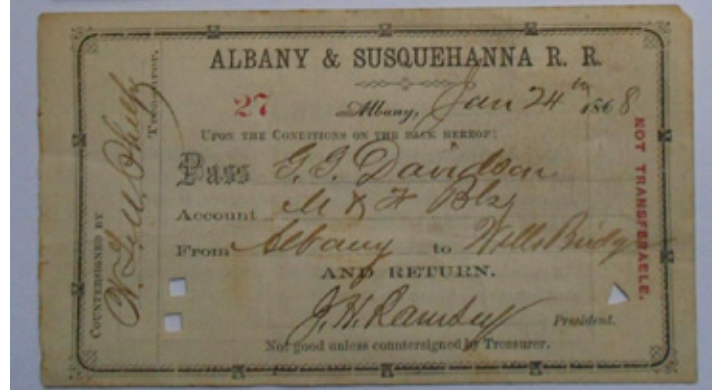 ALBANY & SUSQUEHANNA R. R.
27 Albany, Jan 24th 1868
UPON THE CONDITIONS ON THE BACK HEREOF:
Pass G. I. Davidson
Account M & F Blg
From Albany to Wells Bridge
AND RETURN.
J. H. Ramsey President.
Not good unless countersigned by Treasurer.
COUNTERSIGNED BY
Treasurer.
NOT TRANSFERABLE.